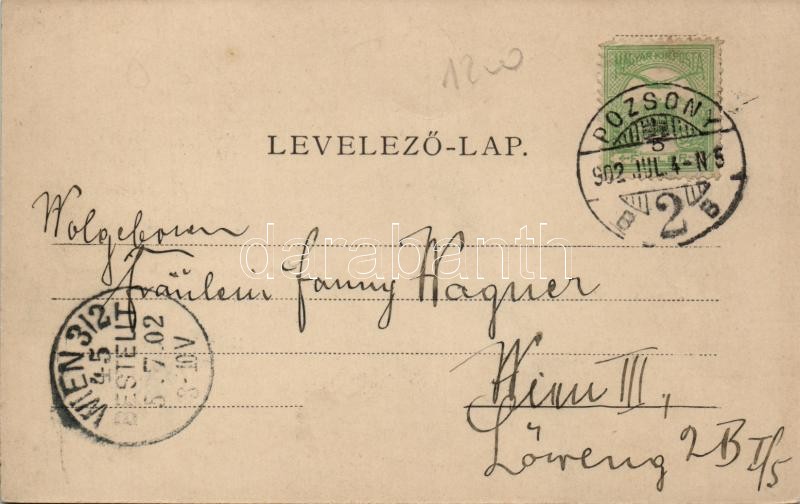 1200
MAGYAR KIR. POSTA
POZSONY
5
902 JUL. 4-N 5
B 2 B
LEVELEZŐ-LAP.
Wolgeboren
darabanth
Fräulein Fanny Wagner
WIEN 3/2
45
BESTELLT
5.7.02
8-10V
Wien III,
Löweng 2B I/5